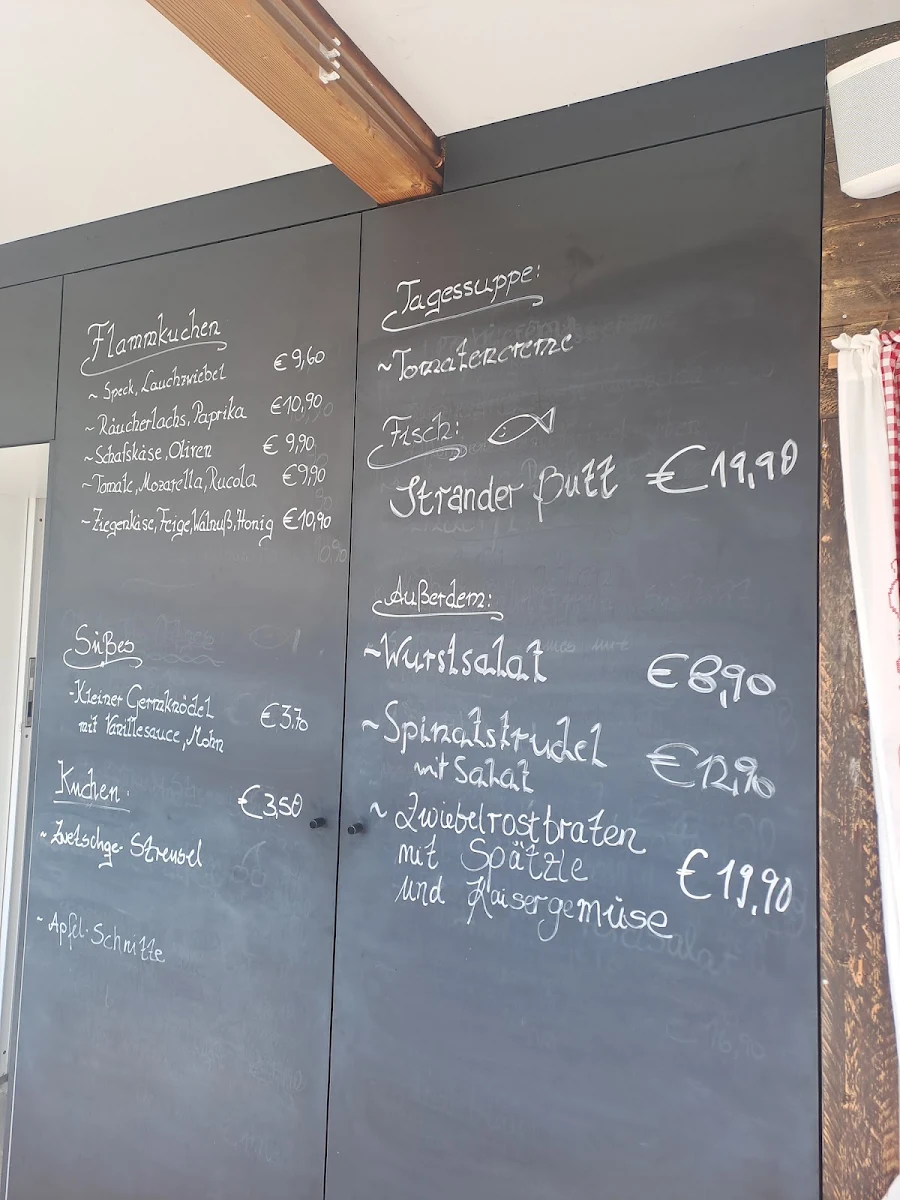 Flammkuchen
~ Speck, Lauchzwiebel €9,60
~ Räucherlachs, Paprika €10,90
~ Schafskäse, Oliven € 9,90
~ Tomate, Mozarella, Rucola €9,90
~ Ziegenkäse, Feige, Walnuß, Honig €10,90
Süßes
- Kleiner Germknödel €3,70
mit Vanillesauce, Mohn
Kuchen: €3,50
~ Zwetschge-Streusel
~ Apfel-Schnitte
Tagessuppe:
~ Tomatencreme
Fisch:
Strander Butt €19,90
Außerdem:
~ Wurstsalat €8,90
~ Spinatstrudel
mit Salat €12,90
~ Zwiebelrostbraten
mit Spätzle €19,90
und Kaisergemüse